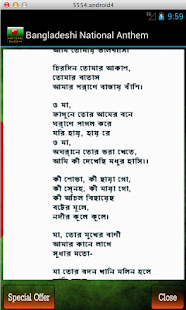 5554:android4
9:59
Bangladeshi National Anthem
আমি তোমায় ভালোবাসি
চিরদিন তোমার আকাশ,
তোমার বাতাস
আমার প্রাণে বাজায় বাঁশি।
ও মা,
ফাগুনে তোর আমের বনে
ঘ্রাণে পাগল করে
মরি হায়, হায় রে
ও মা,
অঘ্রানে তোর ভরা খেতে,
আমি কী দেখেছি মধুর হাসি।।
কী শোভা, কী ছায়া গো,
কী স্নেহ, কী মায়া গো,
কী আঁচল বিছায়েছ
বটের মূলে,
নদীর কূলে কূলে।
মা, তোর মুখের বাণী
আমার কানে লাগে
সুধার মতো-
মা তোর বদন খানি মলিন হলে
Special Offer
Close